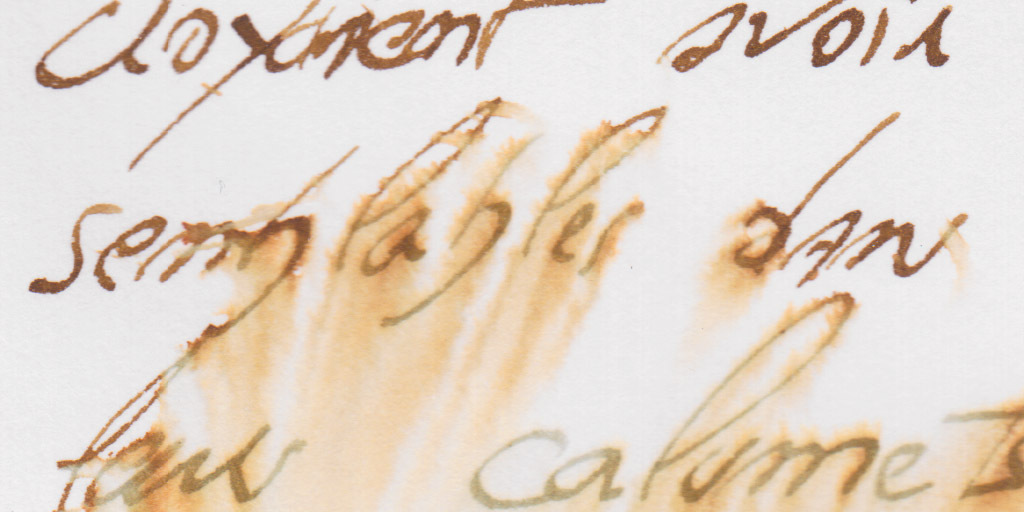 croyent avoir
semblables dans
leurs calumets